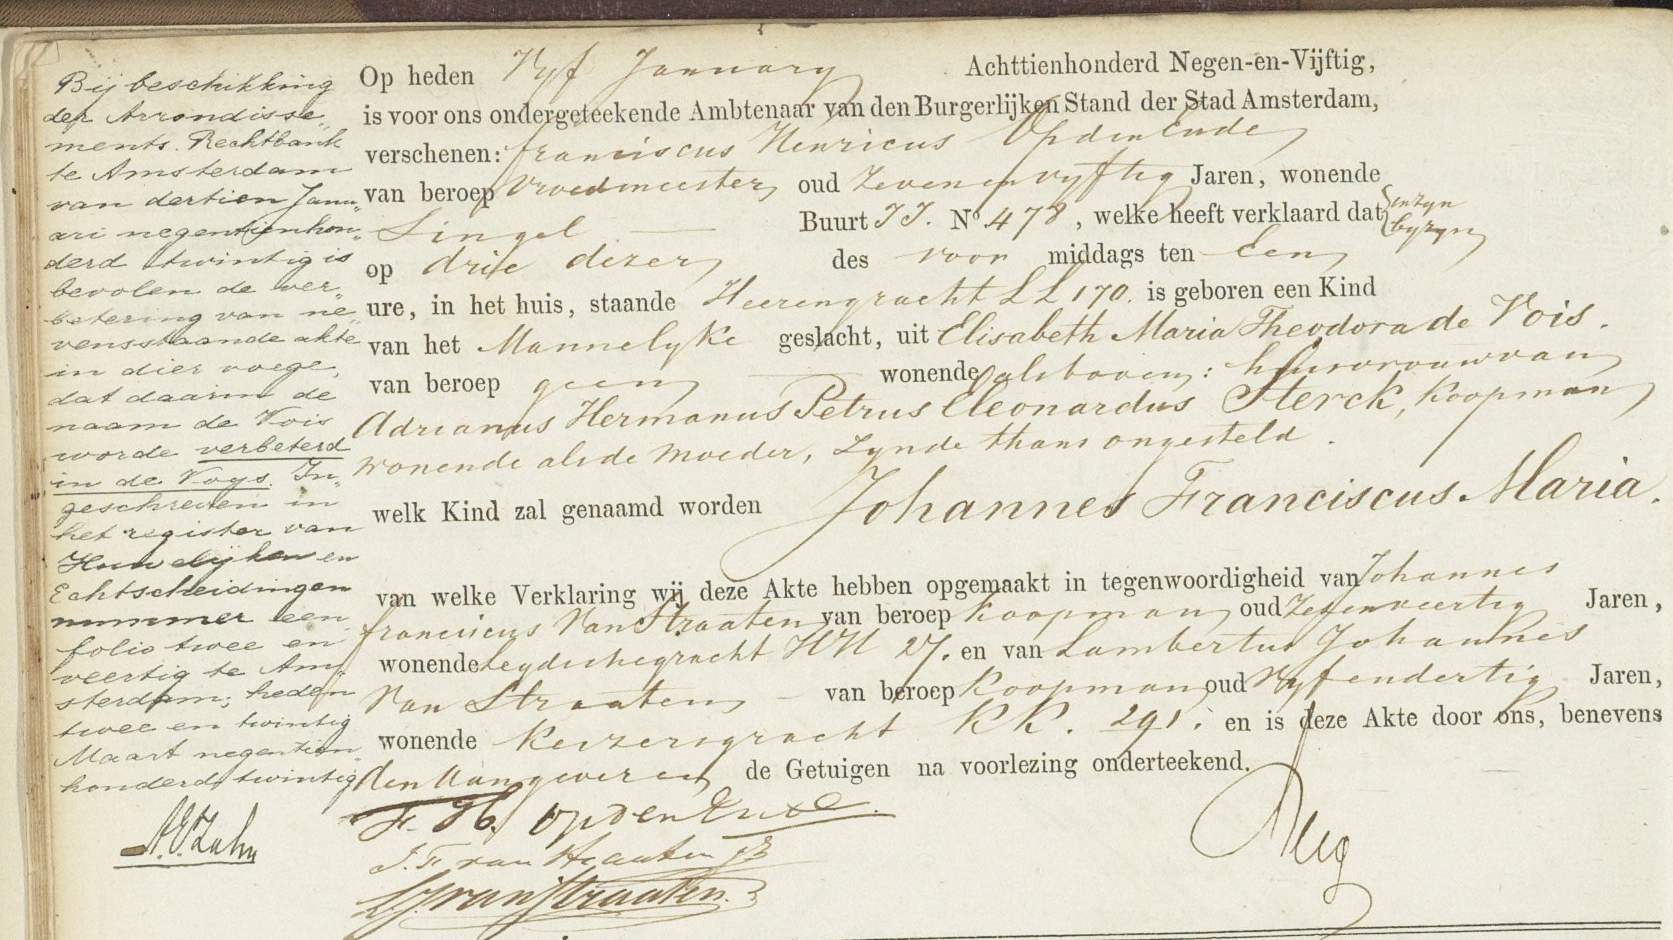 Bij beschikking
der Arrondisse„
ments. Rechtbank
te Amsterdam
van dertien Janu„
ari negentienhon„
derd twintig is
bevolen de ver„
betering van ne„
vensstaande akte
in dier voege,
dat daarin de
naam de Vois
worde verbeterd
in de Voys. In„
geschreven in
het register van
Huwelijken en
Echtscheidingen
nummer een
folio twee en
veertig te Am„
sterdam; heden
twee en twintig
Maart negentien„
honderd twintig
Op heden Vyf January Achttienhonderd Negen-en-Vijftig,
is voor ons ondergeteekende Ambtenaar van den Burgerlijken Stand der Stad Amsterdam,
verschenen: franciscus Henricus Op den Ende
van beroep vroedmeester, oud Zeven en vyftig Jaren, wonende
Singel Buurt JJ. No. 478, welke heeft verklaard dat in zyn
byzyn
op drie dezer, des voor middags ten Een
ure, in het huis, staande Heerengracht LL 170. is geboren een Kind
van het Mannelyke geslacht, uit Elisabeth Maria Theodora de Vois.
van beroep geen wonende als boven: huisvrouw van
Adrianus Hermanus Petrus Eleonardus Sterck, Koopman
wonende als de moeder, zynde thans ongesteld.
welk Kind zal genaamd worden Johannes Franciscus Maria.
van welke Verklaring wij deze Akte hebben opgemaakt in tegenwoordigheid van Johannes
franciscus Van Straaten van beroep Koopman oud Zevenveertig Jaren,
wonende Leydschegracht HH 27. en van Lambertus Johannes
Van Straaten van beroep Koopman oud Vyfendertig Jaren,
wonende Keizersgracht KK. 291. en is deze Akte door ons, benevens
den Aangever en de Getuigen na voorlezing onderteekend.
F. H. op den Ende.
J. F. van Straaten
L J van Straaten.